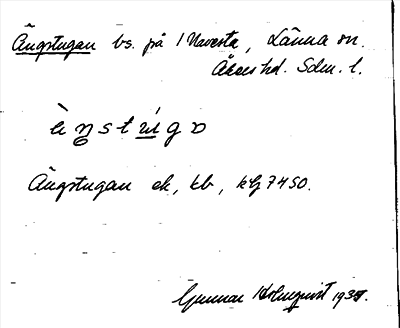 Ängstugan bs. på 1 Navesta, Länna sn.
Åkers hd. Sdm. l.
Ängstugan ek, kb, kg 7450.
Gunnar Holmquist